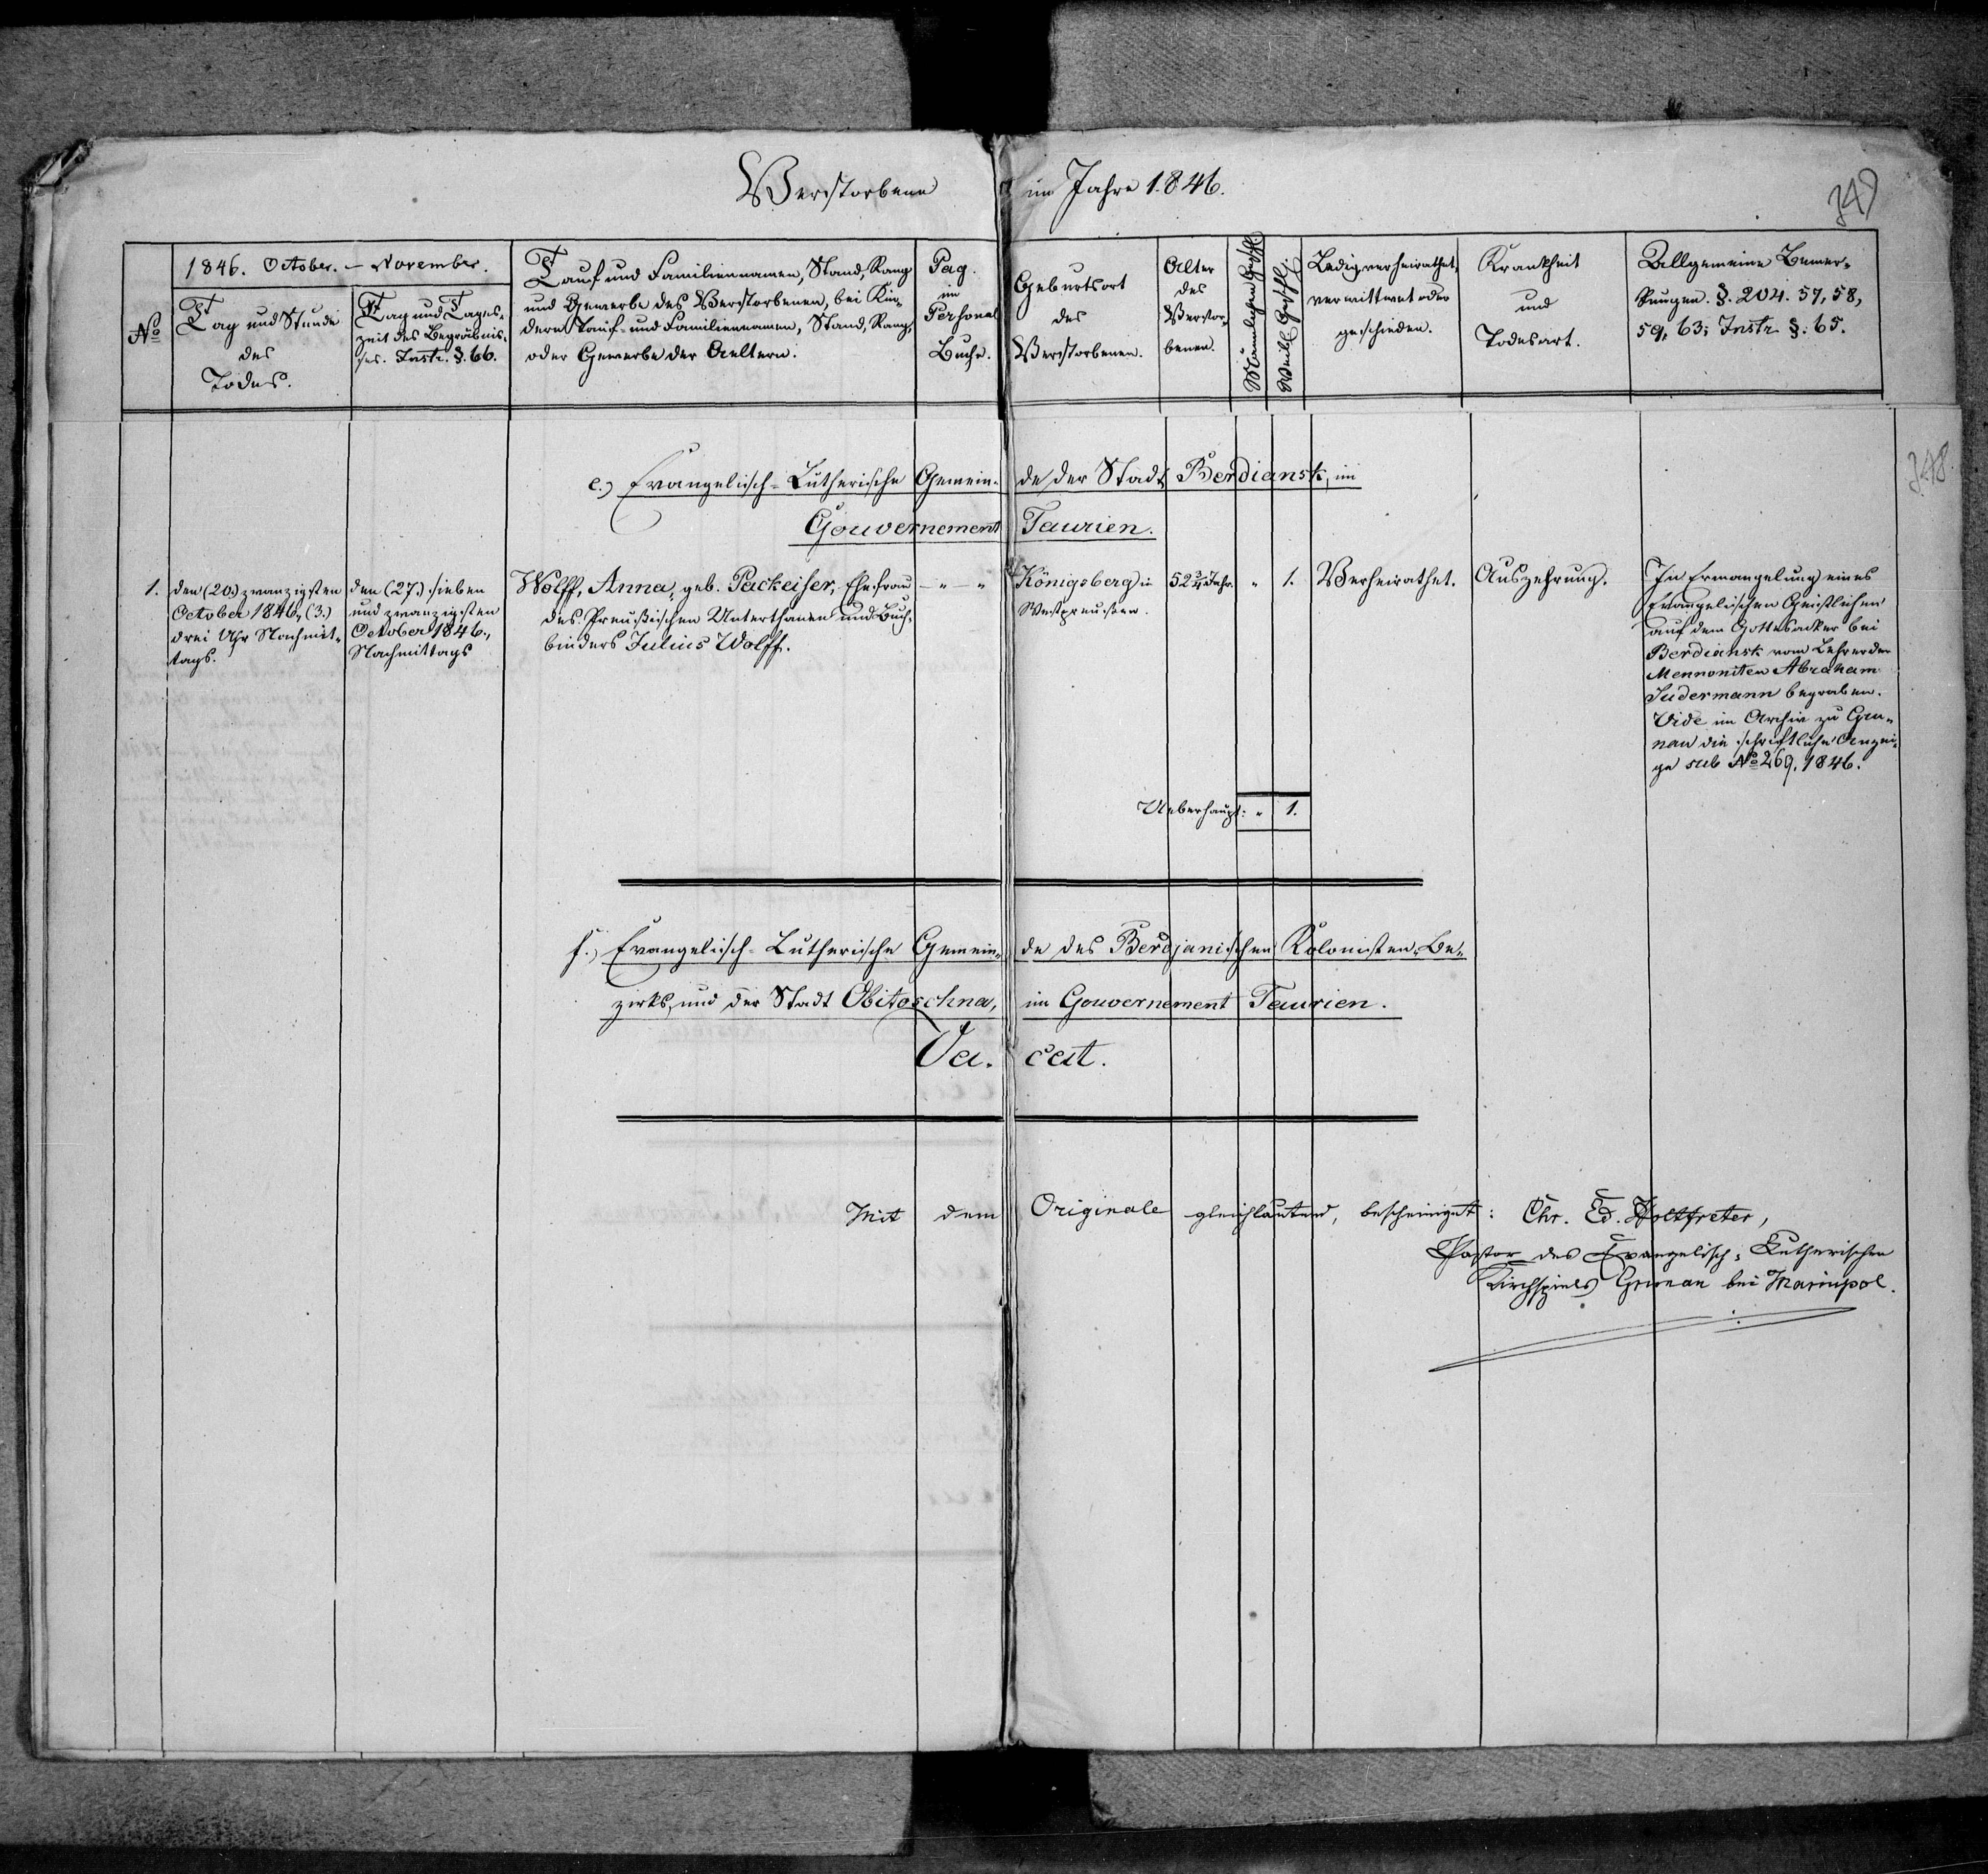 Verstorbene im Jahre 1846.
349
1846. October. - November.
No
Tag und Stunde
des
Todes.
Tag und Tages-
zeit des Begräbnis-
ses. Instr. §. 66.
Tauf und Familiennamen, Stand, Rang
und Gewerbe des Verstorbenen, bei Kin-
dern Tauf- und Familiennamen, Stand, Rang,
oder Gewerbe der Aeltern.
Pag.
im
Personal
Buche.
Geburtsort
des
Verstorbenen.
Alter
des
Verstor-
benen.
Männlichen Geschl.
Weibl. Geschl.
Ledig, verheirathet,
verwittwet oder
geschieden.
Krankheit
und
Todesart.
Allgemeine Bemer-
kungen. §. 204. 57, 58,
59, 63; Instr. §. 65.
348.
e.) Evangelisch-Lutherische Gemein- de der Stadt Berdiansk, im
Gouvernement Taurien.
1.
den (20.) zwanzigsten
October 1846, (3.)
drei Uhr Nachmit-
tags.
den (27.) sieben
und zwanzigsten
October 1846.,
Nachmittags
Wolff, Anna, geb. Packeiser, Ehefrau
des Preußischen Unterthanen und Buch-
binders Julius Wolff.
- " - "
Königsberg in
Westpreussen.
52 3/4 Jahr.
"
1.
Verheirathet.
Auszehrung.
In Ermangelung eines
Evangelischen Geistlichen
auf dem Gottesacker bei
Berdiansk vom Lehrer der
Mennoniten Abraham
Sudermann begraben.
Vide im Archiv zu Gru-
nau die schriftliche Anzei-
ge sub No 269. 1846.
Ueberhaupt: " 1.
f.) Evangelisch-Lutherische Gemein- de des Berdjanischen Kolonisten-Be-
zirks, und der Stadt Obitoschna, im Gouvernement Taurien.
Va- cat.
Mit dem Originale gleichlautend, bescheinigt: Chr. Ed. Holtfreter,
Pastor des Evangelisch-Lutherischen
Kirchspiels Grunau bei Mariupol.